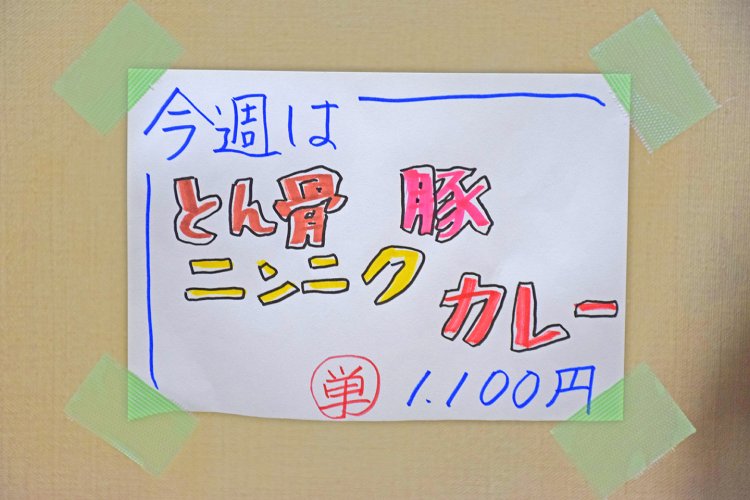 今週は
とん骨 豚
ニンニク
カレー
単 1.100円